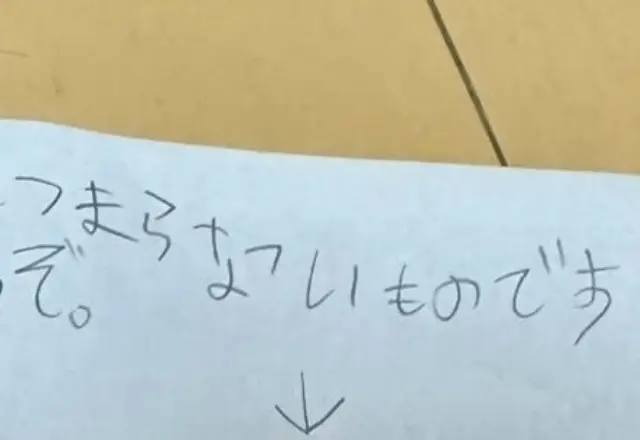 つまらないものです
ぞ。
↓